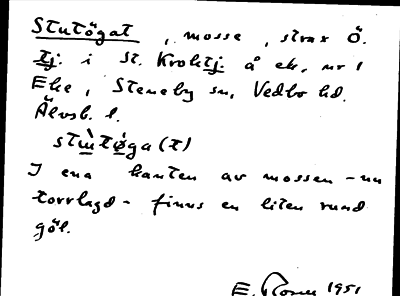 Stutögat, mosse, strax Ö.
tj. i St. Kroktj. å ek, nr 1
Ehe, Steneby sn, Vedbo hd.
Älvsb. l.
stùtǿga(t)
I ena kanten av mossen - nu
torrlagd - finns en liten rund
göl.
E. 1951